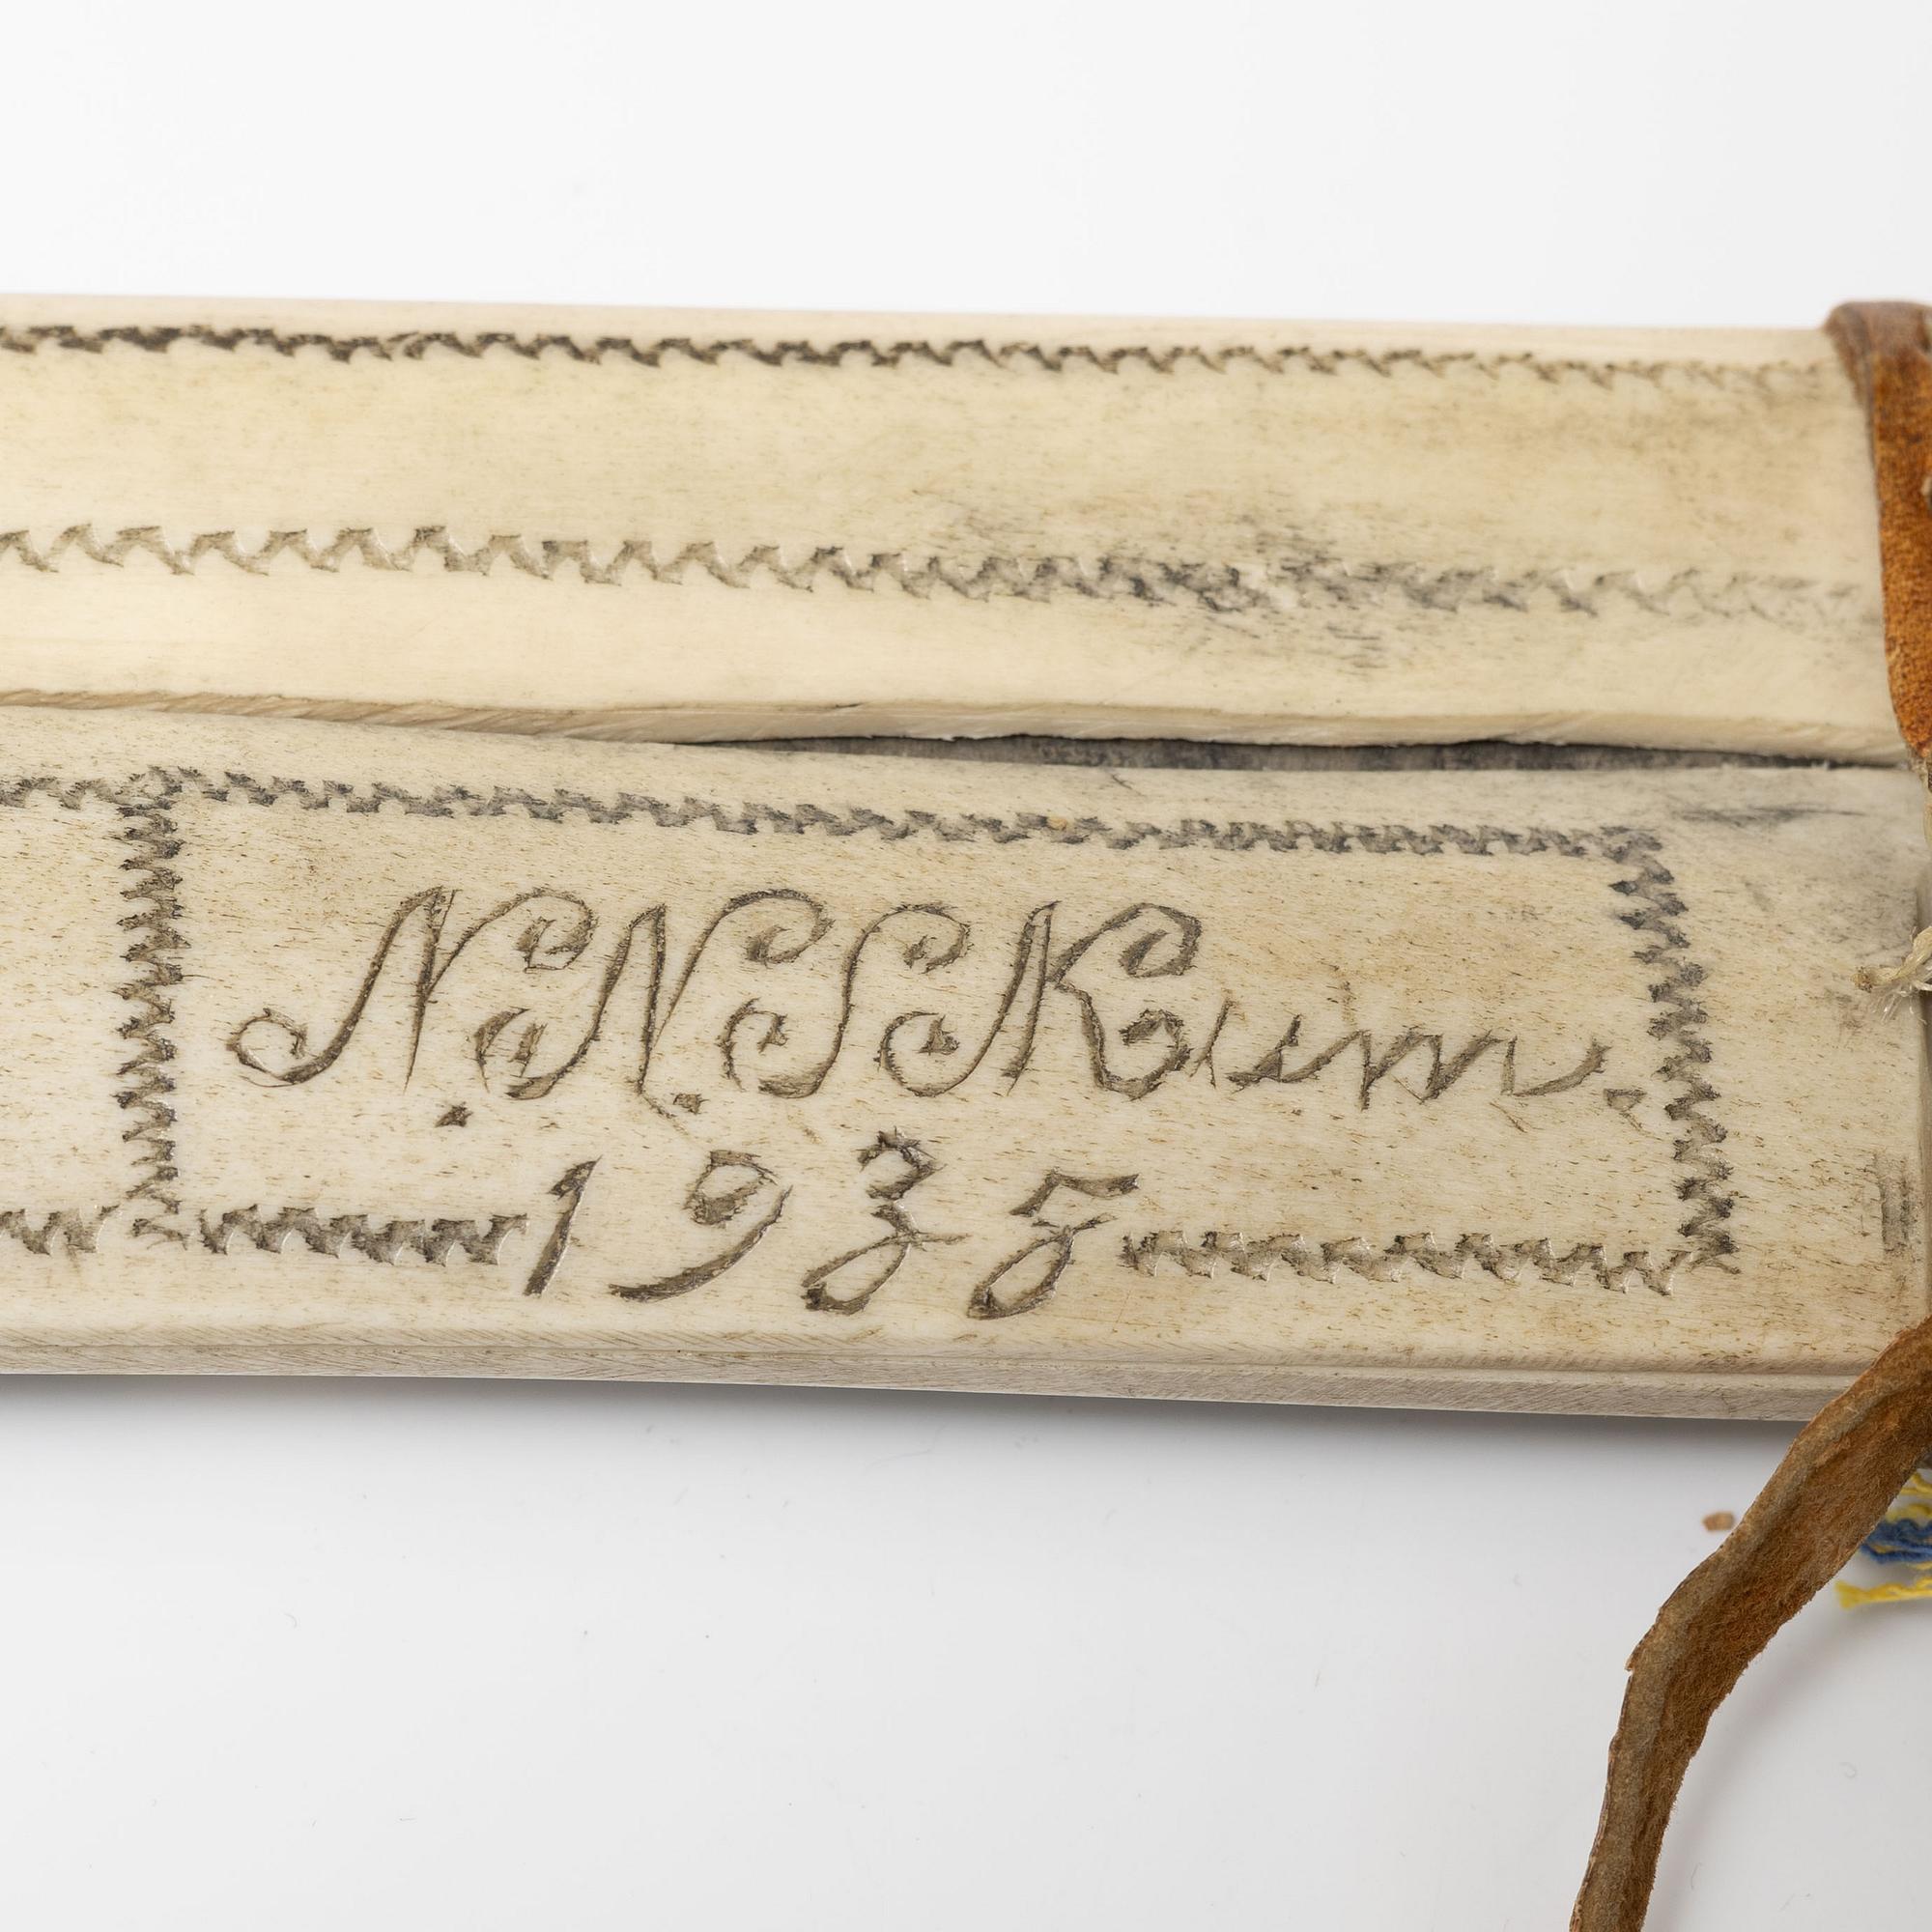 N.N.SKum.
1935